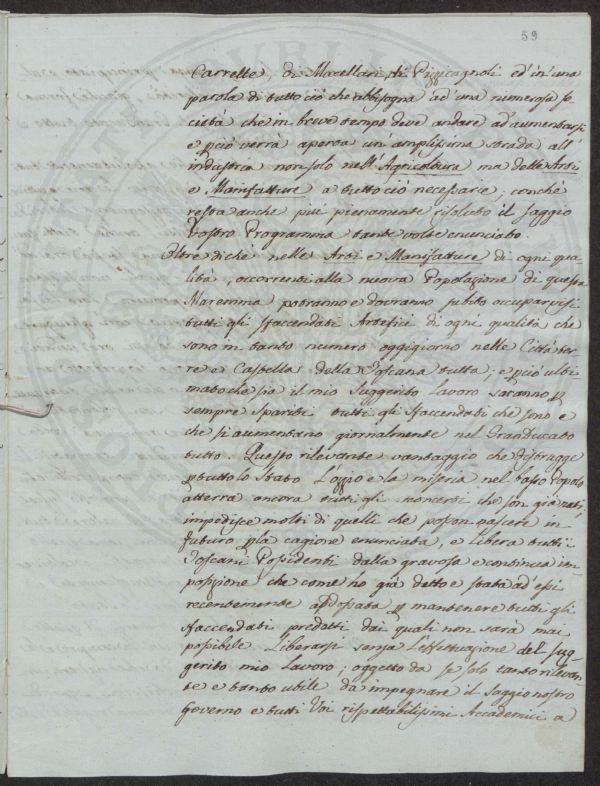 59
Carrette, di Macellari, di Pizzicagnoli ed in una
parola di tutto ciò che abbisogna ad una numerosa so
cietà che in breve tempo deve andare ad aumentarsi
e pciò verrà aperta un'amplissima strada all'
industria non solo nell'Agricoltura ma delle Arti
e Manifatture a tutto ciò necessarie, conche
resta anche più pienamente risoluto il saggio
Vostro Programma tante volte enunciato.
Oltre di che nelle Arti e Manifatture di ogni qua
lità, occorrenti alla nuova Popolazione di questa
Maremma potranno e dovranno subito occuparvisi
tutti gli sfaccendati Artefici di ogni qualità che
sono in tanto numero oggigiorno nelle Città ter
re e Castella della Toscana tutta; e pciò ulti
mato che sia il mio suggerito lavoro saranno p
sempre spariti tutti gli sfaccendati che sono e
che si aumentano giornalmente nel Granducato
tutto. Questo rilevante vantaggio che distrugge
p tutto lo Stato l'ozzio e la miseria nel basso Popolo
atterra ancora tutti gli sconcerti che son già nati,
impedisce molti di quelli che posson nascere in
futuro p la cagione enunciata, e libera tutti i
Toscani Possidenti dalla gravosa e continua im
posizione che come ho già detto è stata ad essi
recentemente addossata p mantenere tutti gli
sfaccendati predetti dai quali non sarà mai
possibile liberarsi senza l'effettuazione del sug
gerito mio lavoro; oggetto da se solo tanto rilevan
te e tanto utile da impegnare il saggio nostro
Governo e tutti Voi rispettabilissimi Accademici a